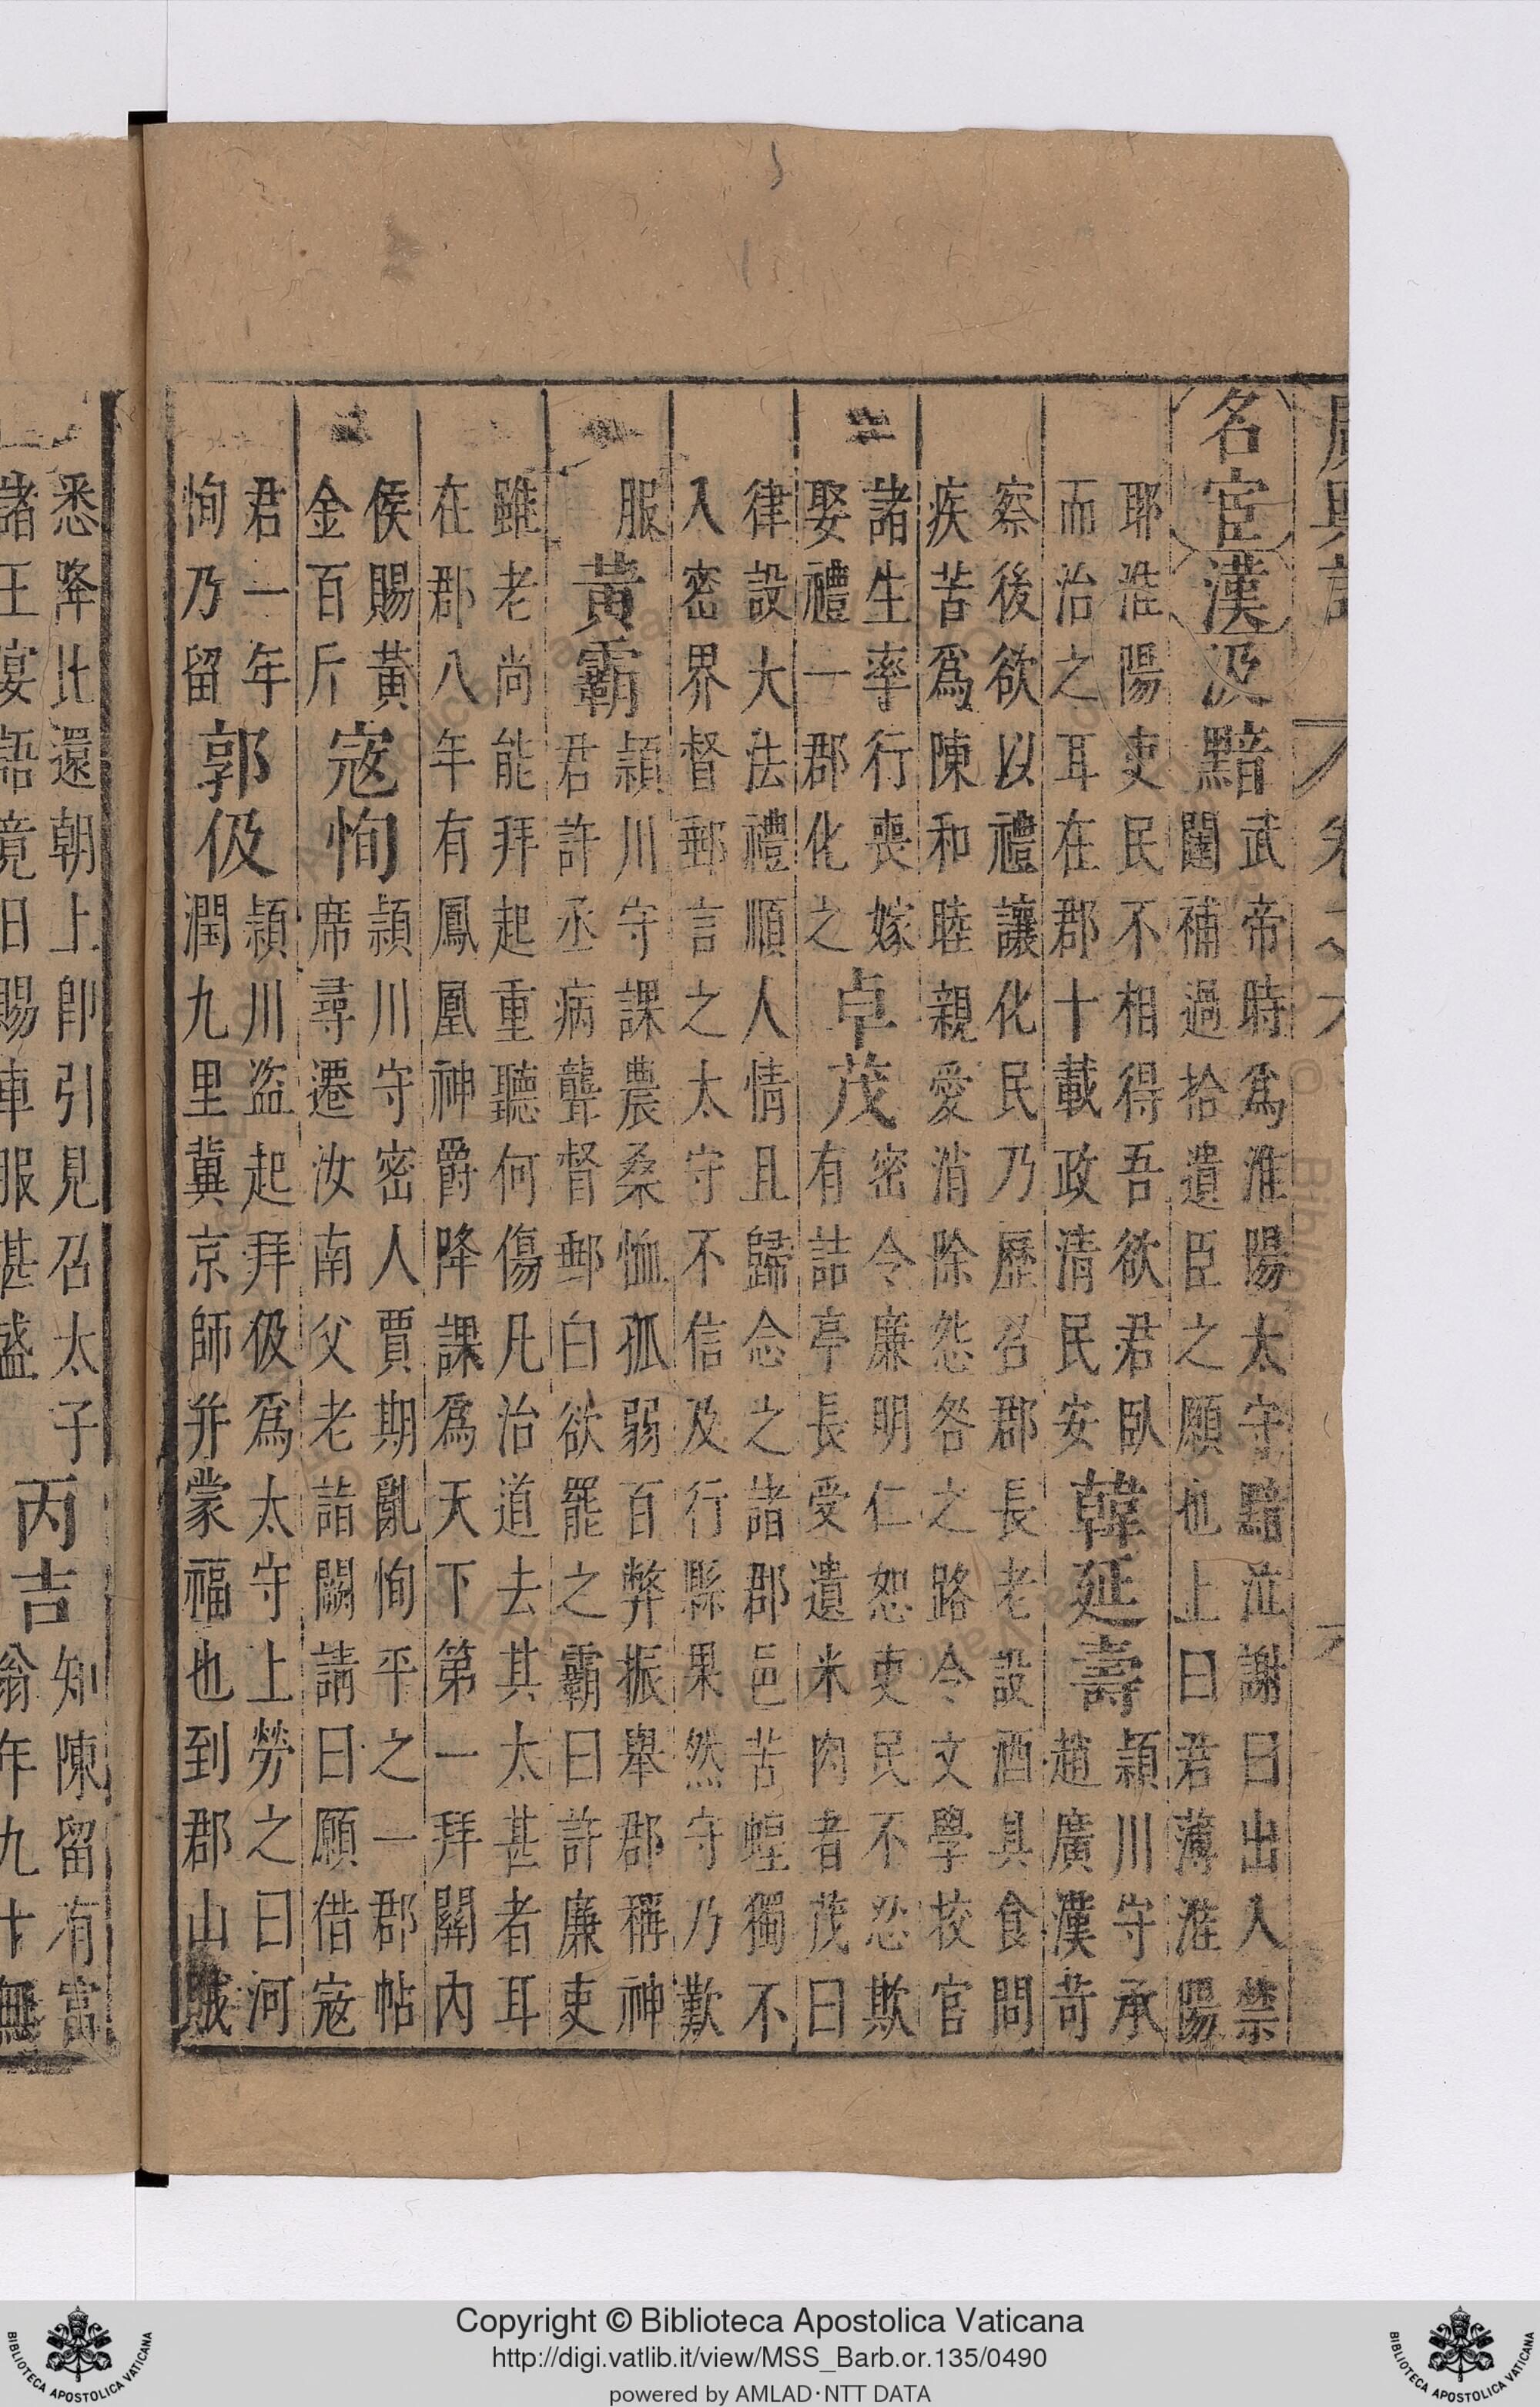 名宦漢汲黯
武帝時爲淮陽太守黯泣謝曰出入禁
闥補過拾遺臣之願也上曰君薄淮陽
耶淮陽吏民不相得吾欲君臥
而治之耳在郡十載政清民安
韓延壽
潁川守承
趙廣漢苛
察後欲以禮讓化民乃歷召郡長老設酒具食問
疾苦爲陳和睦親愛消除怨咎之路令文學校官
諸生率行喪嫁
娶禮一郡化之
卓茂
密令廉明仁恕吏民不忍欺
有詰亭長受遺米肉者茂曰
律設大法禮順人情且歸念之諸郡邑苦蝗獨不
入密界督郵言之太守不信及行縣果然守乃歎
服
黃霸
潁川守課農桑恤孤弱百弊振舉郡稱神
君許丞病聾督郵白欲罷之霸曰許廉吏
雖老尚能拜起重聽何傷凡治道去其太甚者耳
在郡八年有鳳凰神爵降課爲天下第一拜關內
侯賜黃
金百斤
寇恂
潁川守密人賈期亂恂平之一郡帖
席尋遷汝南父老詣闕請曰願借寇
君一年
恂乃留
郭伋
潁川盜起拜伋爲太守上勞之曰河
潤九里冀京師并蒙福也到郡山賊
悉降比還朝上卽引見召太子
諸王宴語竟日賜車服甚盛
丙吉
知陳留有富
翁年九十無
Copyright © Biblioteca Apostolica Vaticana
http://digi.vatlib.it/view/MSS_Barb.or.135/0490
powered by AMLAD·NTT DATA
BIBLIOTECA APOSTOLICA VATICANA
BIBLIOTECA APOSTOLICA VATICANA